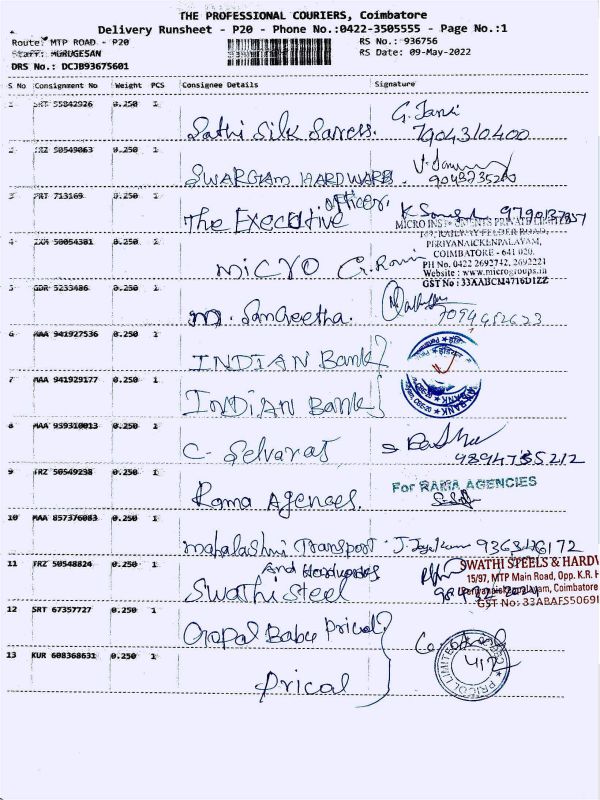 THE PROFESSIONAL COURIERS, Coimbatore
Delivery Runsheet - P20 - Phone No.:0422-3505555 - Page No.:1
Route: MTP ROAD - P20 RS No.: 936756
Staff: MURUGESAN RS Date: 09-May-2022
DRS No.: DCJB93675601
S No Consignment No Weight PCS Consignee Details Signature
1 SRT 55842926 0.250 1 Sathi Silk Sarees. G. Jani
7904310400
2 TRZ 50549063 0.250 1 SWARGAM HARDWARE.
3 PRT 713169 0.250 1 The Executive officer,
MICRO INSTRUMENTS PRIVATE LIMITED
149, RAILWAY FEEDER ROAD,
4 IXM 50054381 0.250 1 PERIYANAICKENPALAYAM,
COIMBATORE - 641 020.
micro G. Rani PH No. 0422 2692742, 2692221
Website : www.microgroups.in
GST No : 33AABCM4716D1ZZ
5 GDR 5233486 0.250 1 m. Sangeetha.
6 MAA 941927536 0.250 1 INDIAN Bank
7 MAA 941929177 0.250 1 INDIAN Bank
8 MAA 959310013 0.250 1 C. Selvaraj
9894735212
9 TRZ 50549238 0.250 1 Rama Agences. For RAMA AGENCIES
10 MAA 857376083 0.250 1 mahalashmi Transport
11 TRZ 50548824 0.250 1 And Hardwares
Swathi Steel SWATHI STEELS & HARDW
15/97, MTP Main Road, Opp. K.R. H
Periyanaickenpalayam, Coimbatore
GST No: 33ABAFS5069
12 SRT 67357727 0.250 1 Gopal Babu Pricol
13 KUR 608368631 0.250 1 Prical
PRICOL LIMITED